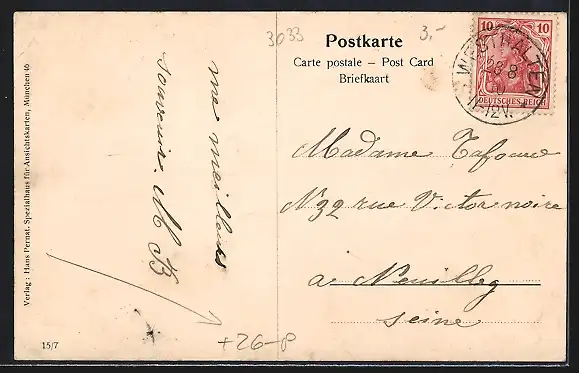 3033
3,-
Postkarte
Carte postale – Post Card
Briefkaart
10 10
WESTHALTEN
28 8
11-12V.
DEUTSCHES REICH
me meilleurs
souvenirs. M B
Madame Lafourc
N 39 rue Victor noire
a Neuilleg
seine
+26-8
Verlag: Hans Pernat, Spezialhaus für Ansichtskarten, München 46
15/7